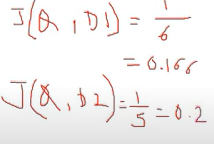 J(Q, D1) = 1/6
= 0.166
J(Q, D2) = 1/5 = 0.2